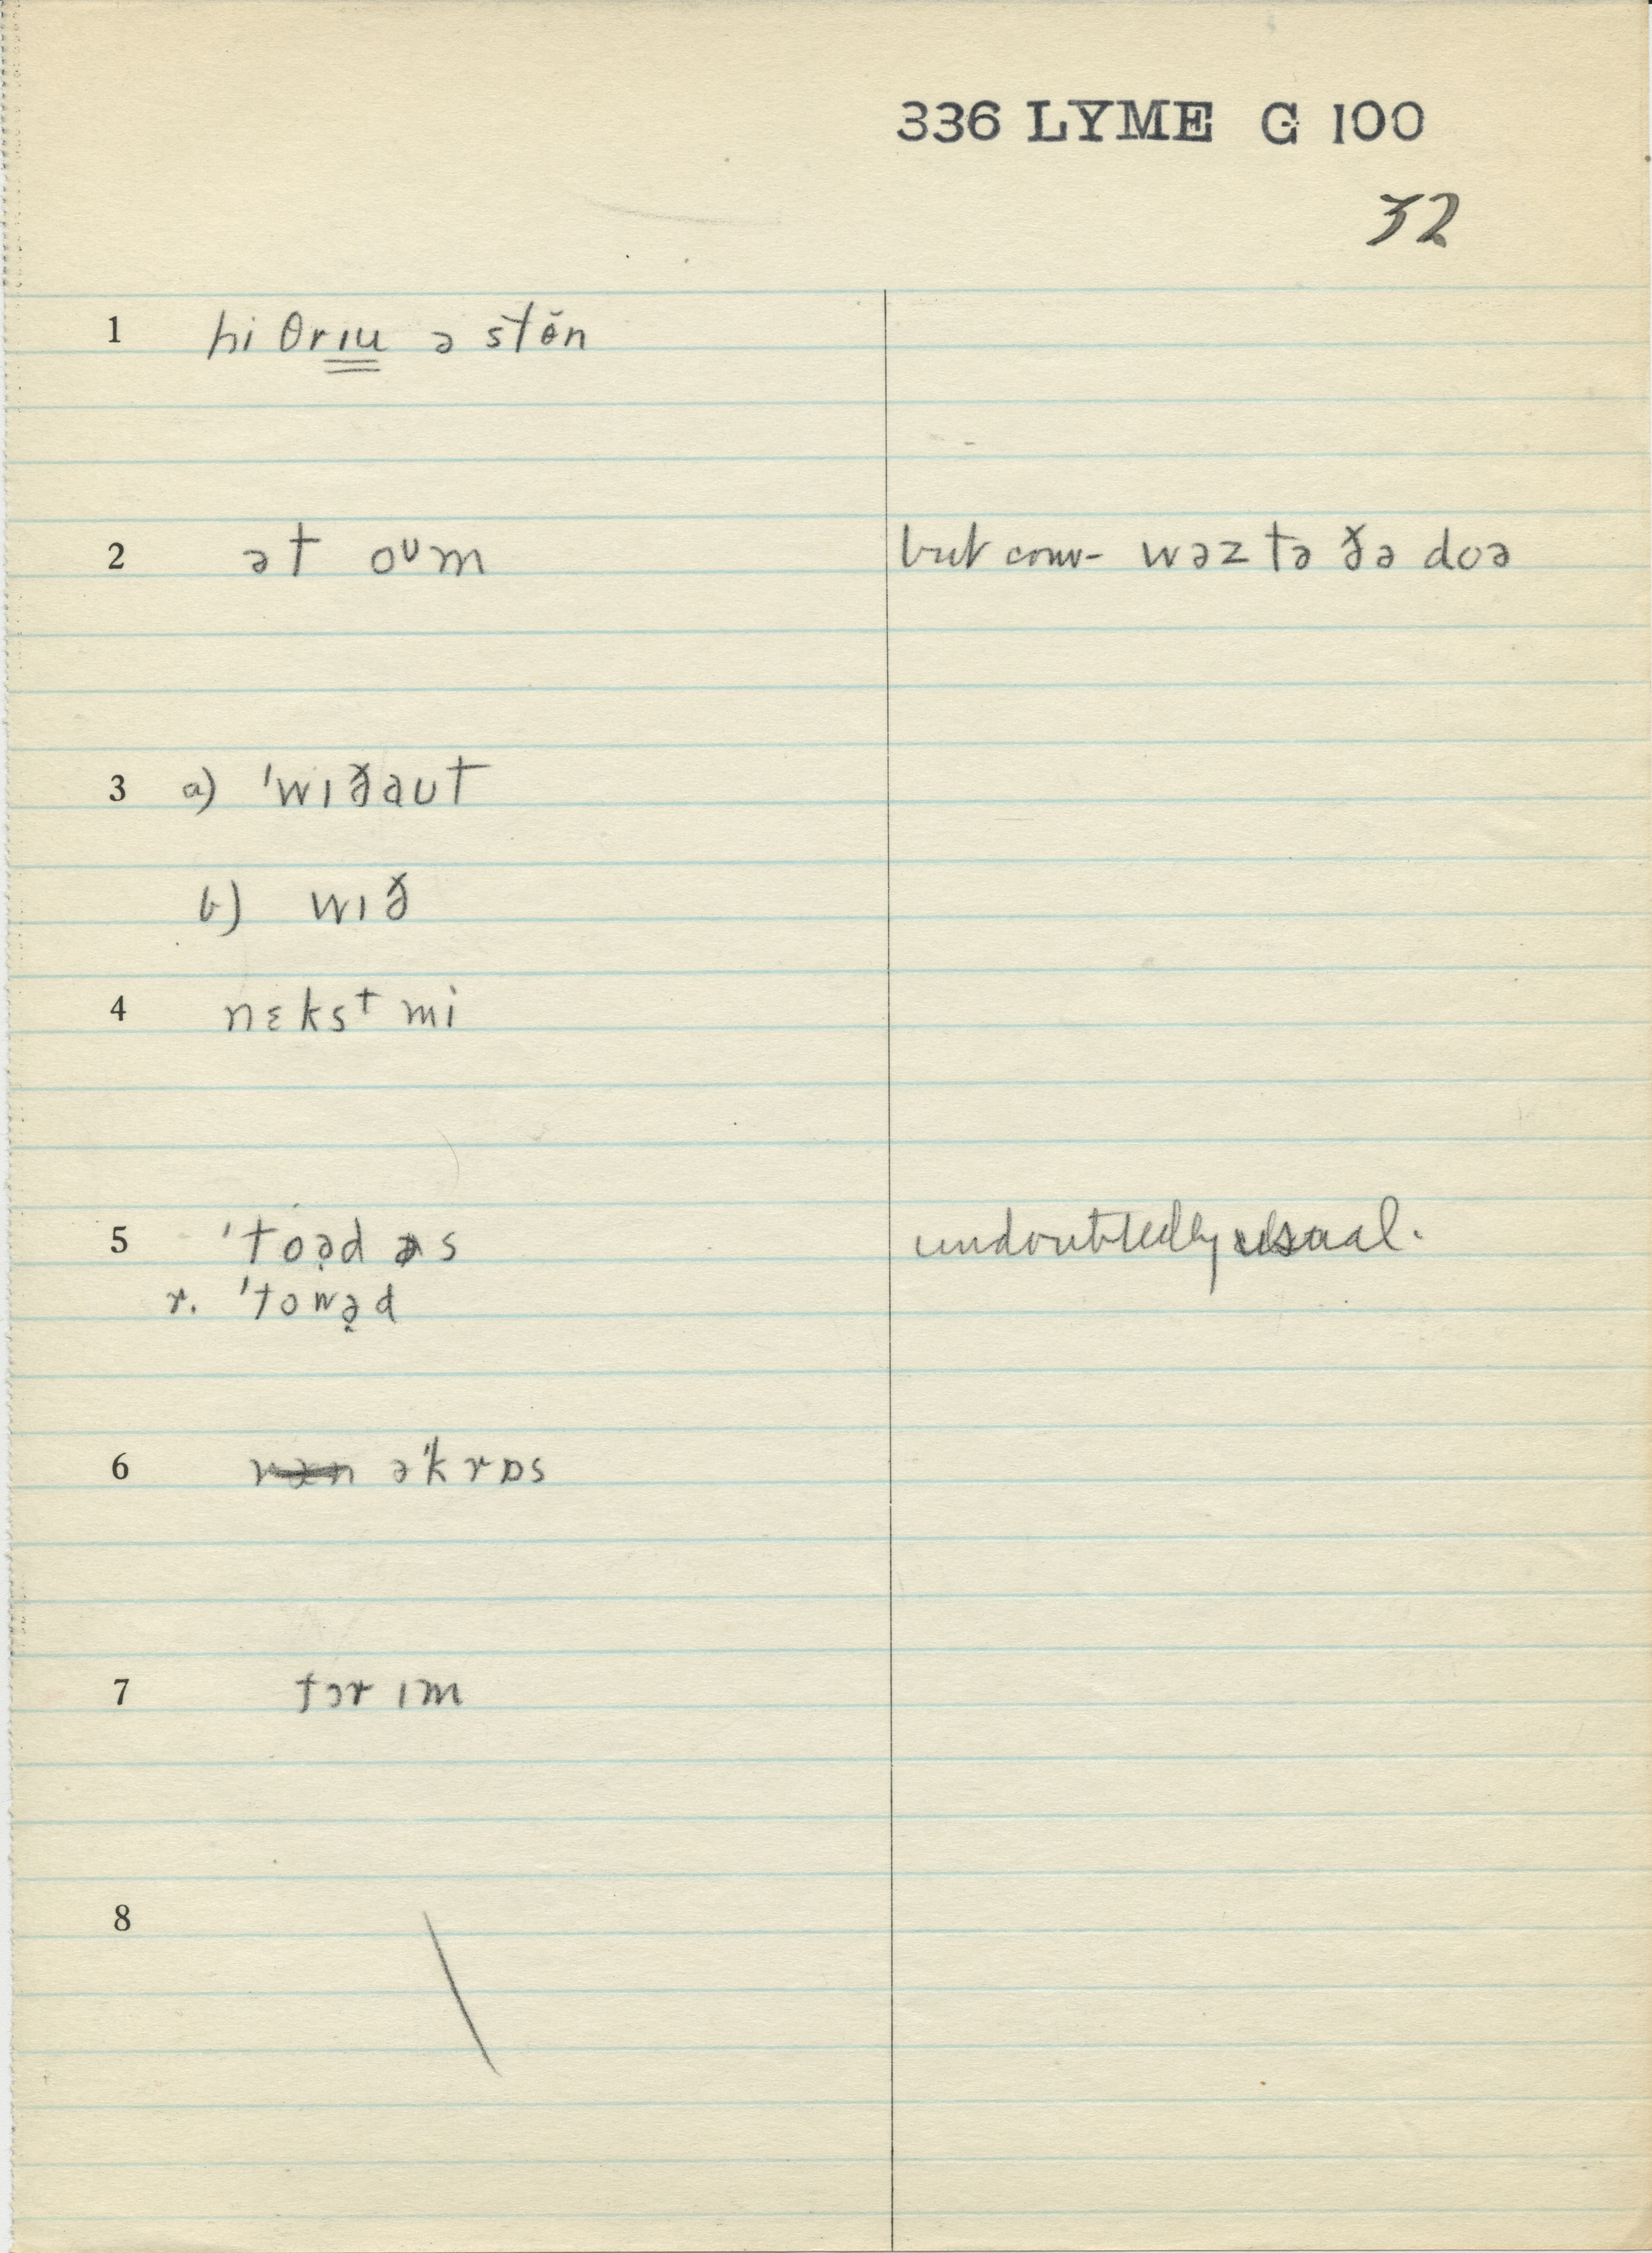 336 LYME G 100
32
1 hi θrɪu ə stɵ̆n
2 ət oᴜm but conv- wəz tə ðə doə
3 a) 'wɪðaʊt
b) wɪð
4 nɛksᵗ mi
5 'toə̣d əs undoubtedly usual.
r. 'towə̣d
6 rən ə'krɒs
7 fɔr ɪm
8